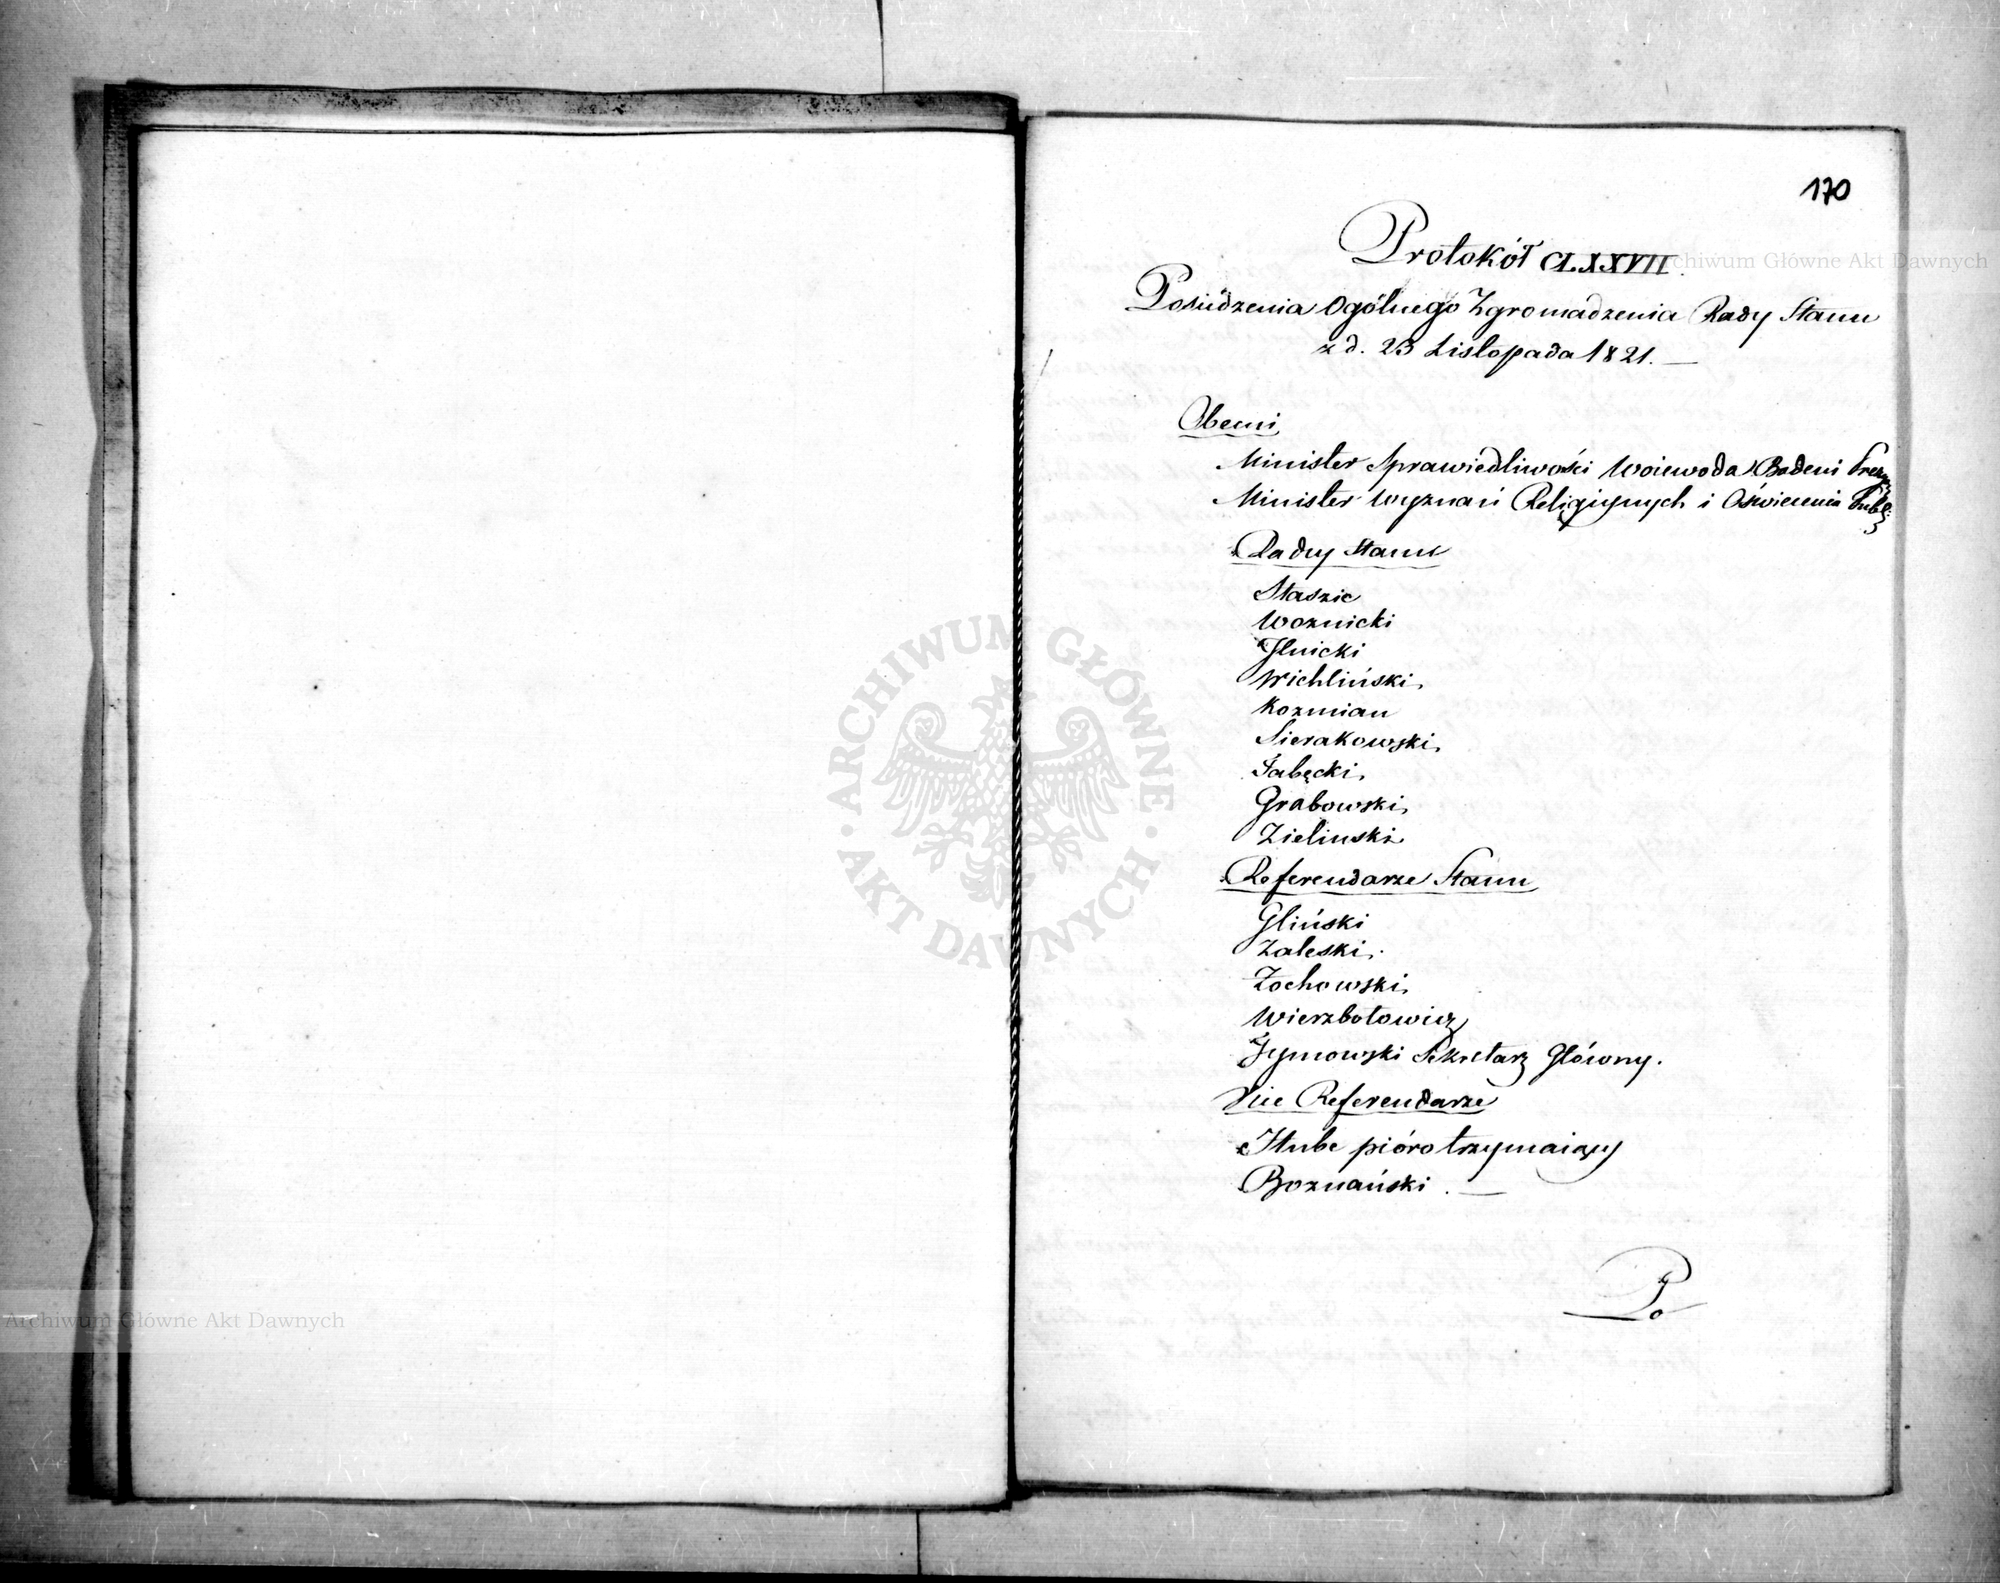 170
Protokół CLXXVII.
Posiedzenia Ogólnego Zgromadzenia Rady Stanu
z d. 23 Listopada 1821. —
Obecni
Minister Sprawiedliwości Woiewoda Badeni Prezyd:
Minister Wyznań Religiynych i Oświecenia Publ:
Radcy Stanu
Staszic
Woznicki
Ilnicki
Wichliński
Kozmian
Sierakowski
Łabęcki
Grabowski
Zielinski
Referendarze Stanu
Gliński
Zaleski
Żochowski
Wierzbołowicz
Żymowski Sekretarz Główny.
Vice Referendarze
Hube pióro trzymaiący
Boznański. —
Po
ARCHIWUM GŁÓWNE AKT DAWNYCH
Archiwum Główne Akt Dawnych
Archiwum Główne Akt Dawnych